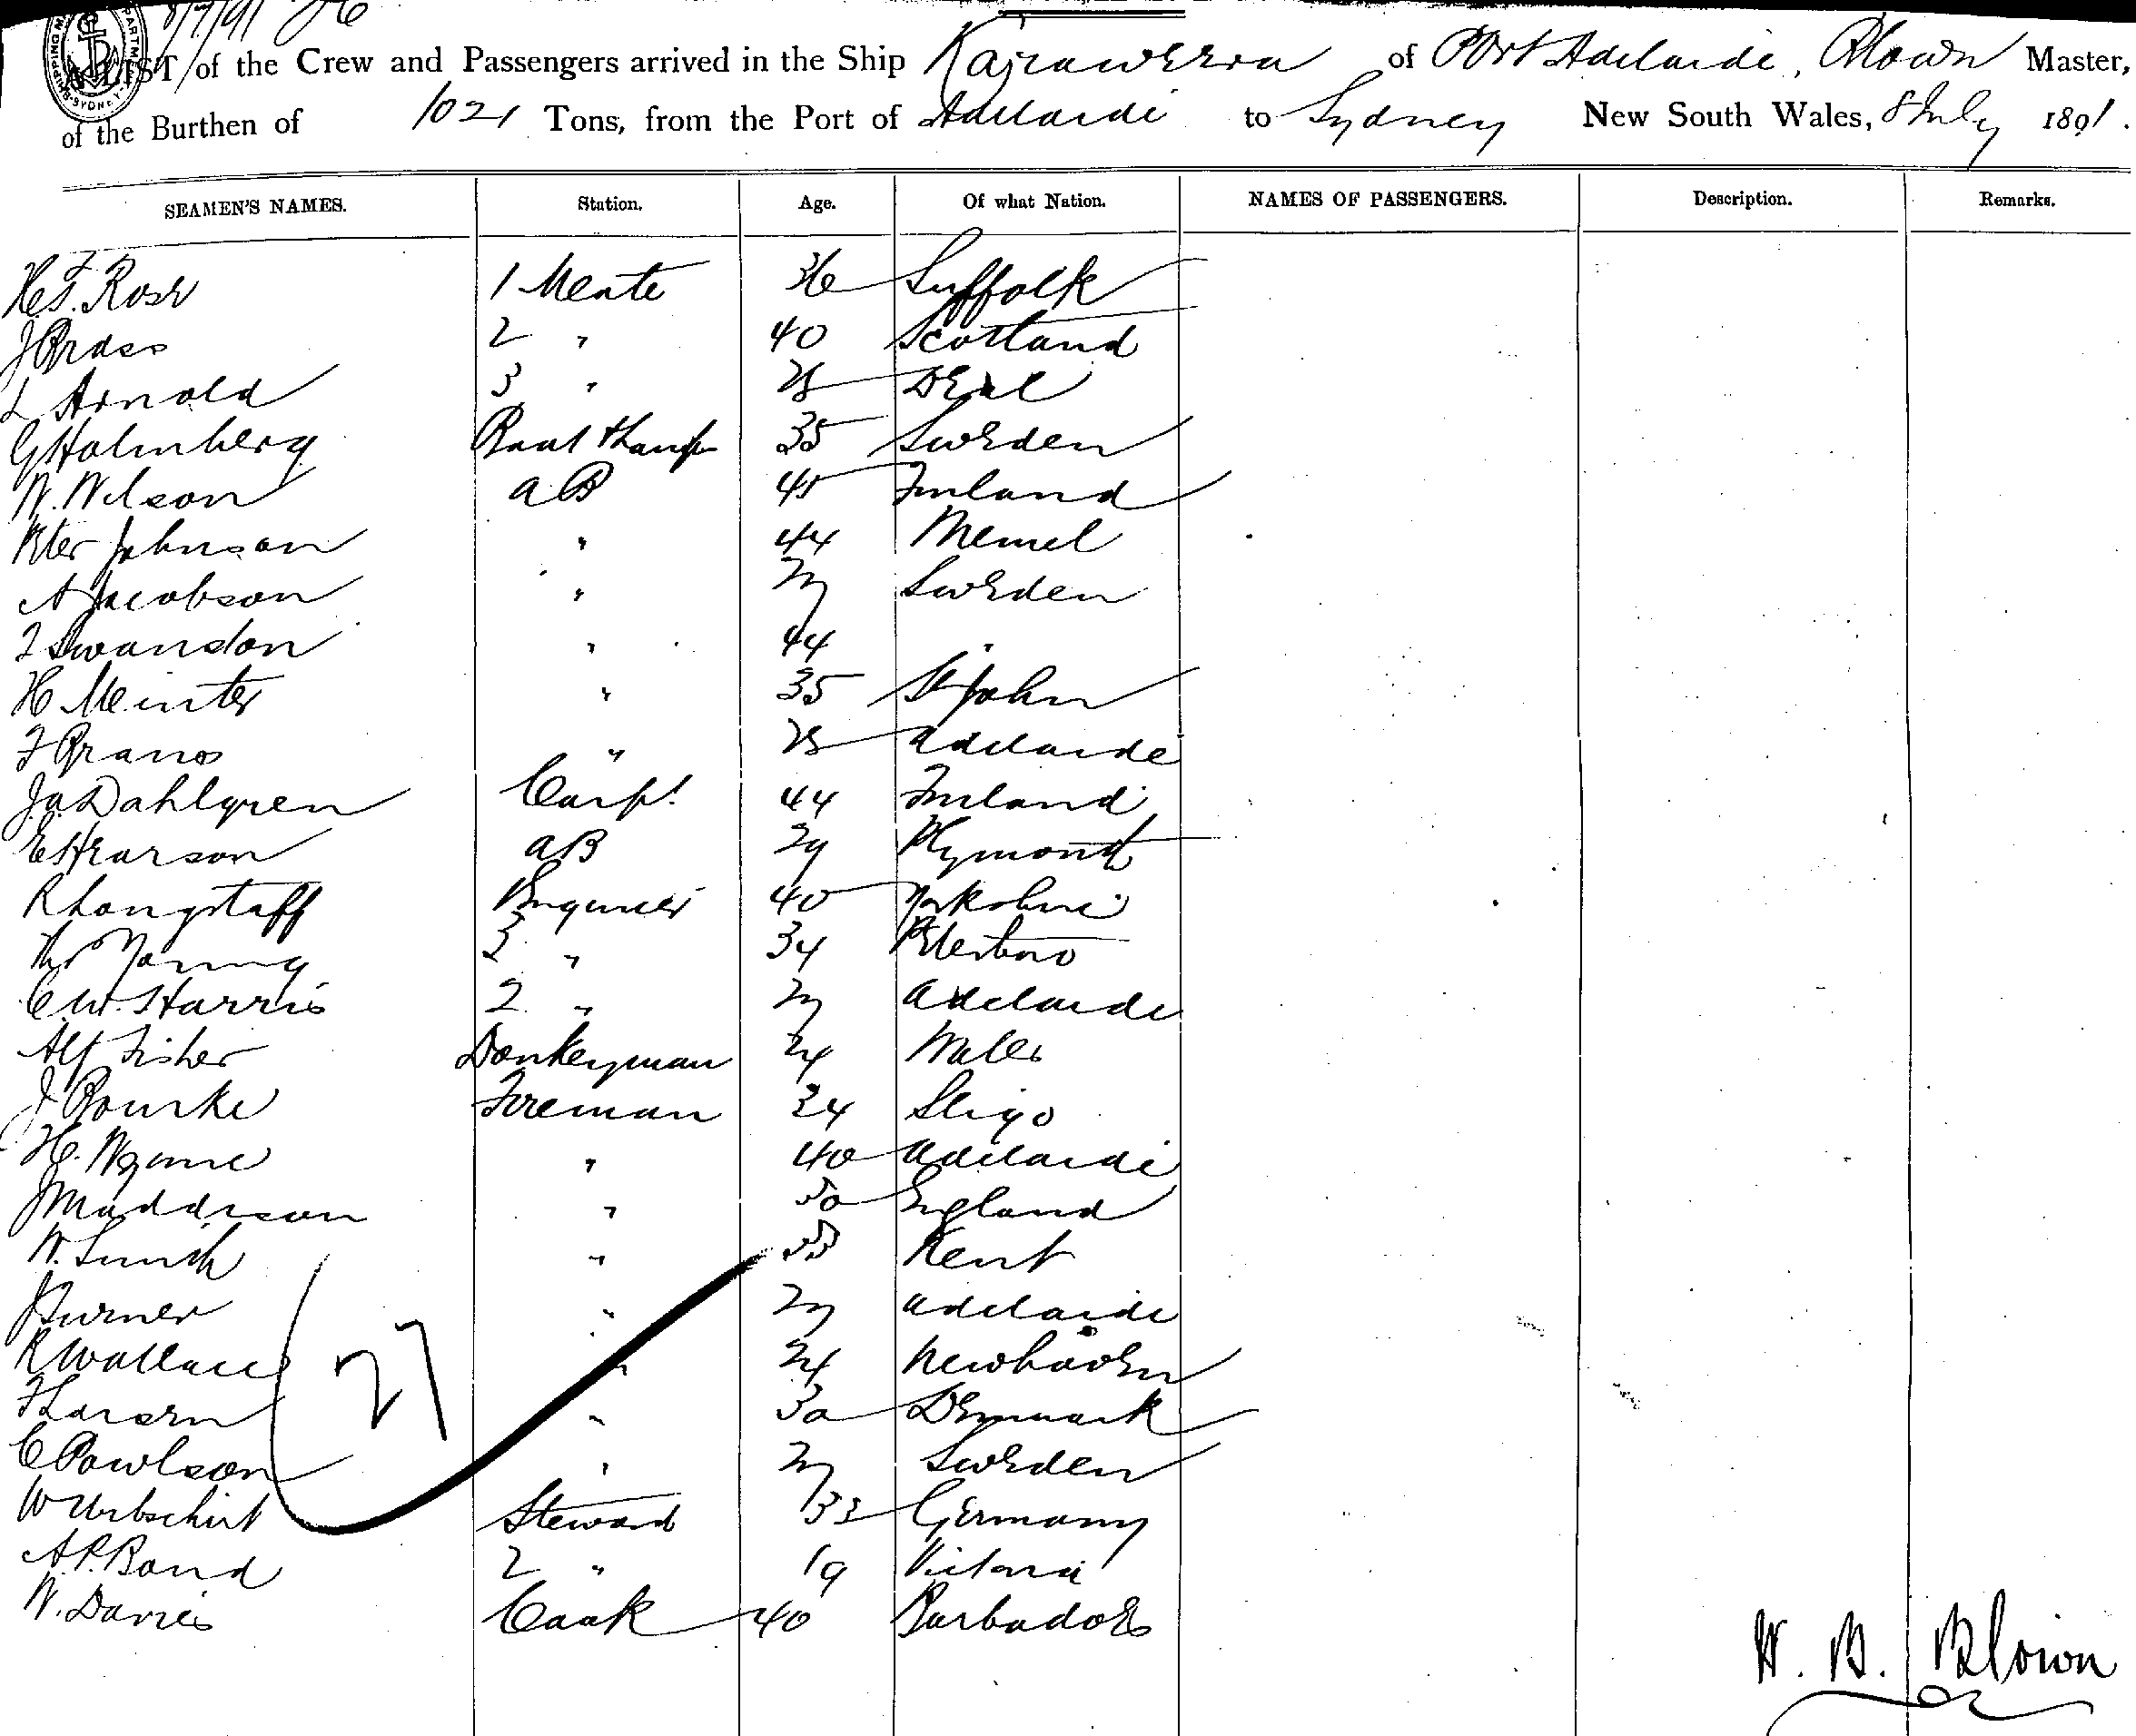 8/7/91
A LIST of the Crew and Passengers arrived in the Ship Kajrawerra of Port Adelaide, Blown Master,
of the Burthen of 1021 Tons, from the Port of Adelaide to Sydney New South Wales, 8 July 1891.
SEAMEN'S NAMES. Station. Age. Of what Nation. NAMES OF PASSENGERS. Description. Remarks.
Ross 1 Mate 36 Suffolk
J Brass 2 " 40 Scotland
L Arnold 3 " 28 Deal
G Holmberg 35 Sweden
W. Wilson AB 45 Finland
Peter Johnson " 44 Memel
A Jacobson " 27 Sweden
J Swanson " 44 "
H Meinter " 35 St John
F " 28 Adelaide
J.A. Dahlgren Carpt. 44 Finland
E Hearson AB 29 Plymouth
R Longstaff Engineer 40 Yorkshire
Young 3 " 34 Peterboro
C.W. Harris 2 " 27 Adelaide
Alf Fisher Donkeyman 24 Wales
J Rourke Fireman 34 Sligo
H. Wynne " 40 Adelaide
J Maddison " 50 England
W. Smith " 33 Kent
J Turner " 27 Adelaide
R Wallace " 24 Newhaven
F Larsen " 30 Denmark
C Powlson " 27 Sweden
W Urbschirt Steward 33 Germany
A.P. Bond 2 " 19 Victoria
W. Davies Cook 40 Barbadoes
27
W. B. Blown